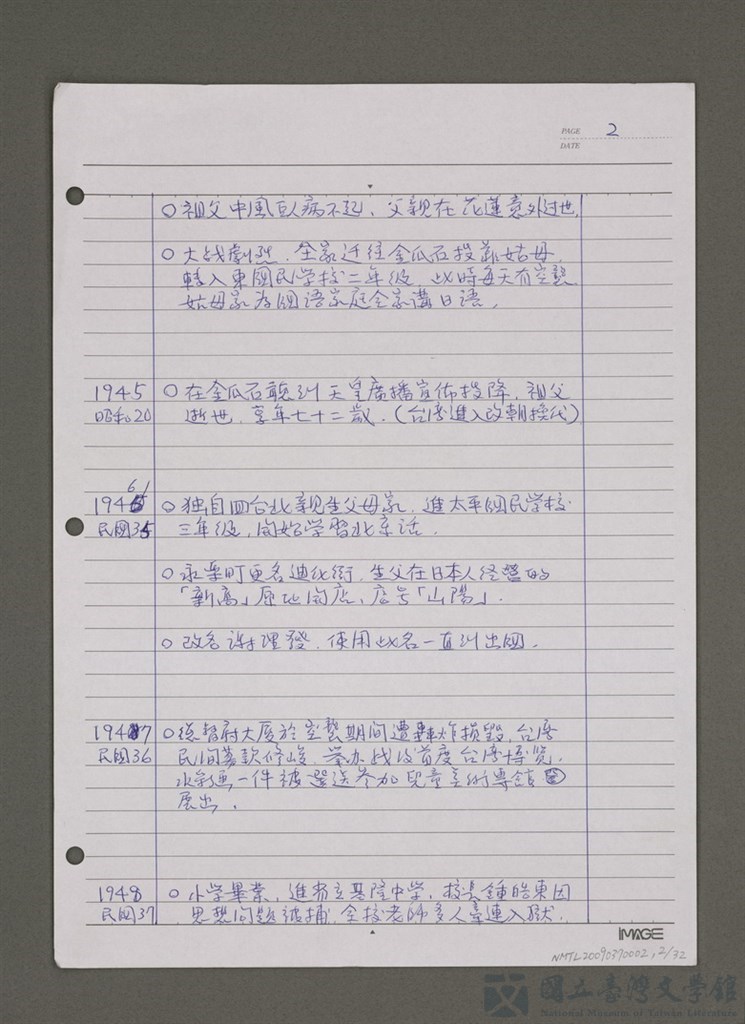 PAGE 2
DATE
○ 祖父中風臥病不起、父親在花蓮意外过世.
○ 大战劇烈. 全家迁往金瓜石投靠姑母.
轉入東國民学校二年級. 此時每天有空襲.
姑母家为国语家庭全家講日語.
1945 ○ 在金瓜石聽到天皇廣播宣佈投降. 祖父
昭和20 逝世. 享年七十二歲. (台湾進入改朝換代)
1946 ○ 独自回台北親生父母家. 進太平國民学校
民國35 三年級. 開始学習北京话.
○ 永楽町更名迪化街. 生父在日本人经营的
「新高」原地開店. 店号「山陽」.
○ 改名謝理發. 使用此名一直到出國.
1947 ○ 總督府大厦於空襲期间遭轟炸损毀. 台湾
民國36 民间籌款修峻. 举办战後首度台湾博览.
水彩画一件被選送参加兒童美術專館
展出.
1948 ○ 小学畢業. 進省立基隆中学. 校長鍾皓東因
民國37 思想问题被捕. 全校老師多人牽連入獄.
IMAGE
NMTL20090370002, 2/32
國立臺灣文學館
National Museum of Taiwan Literature